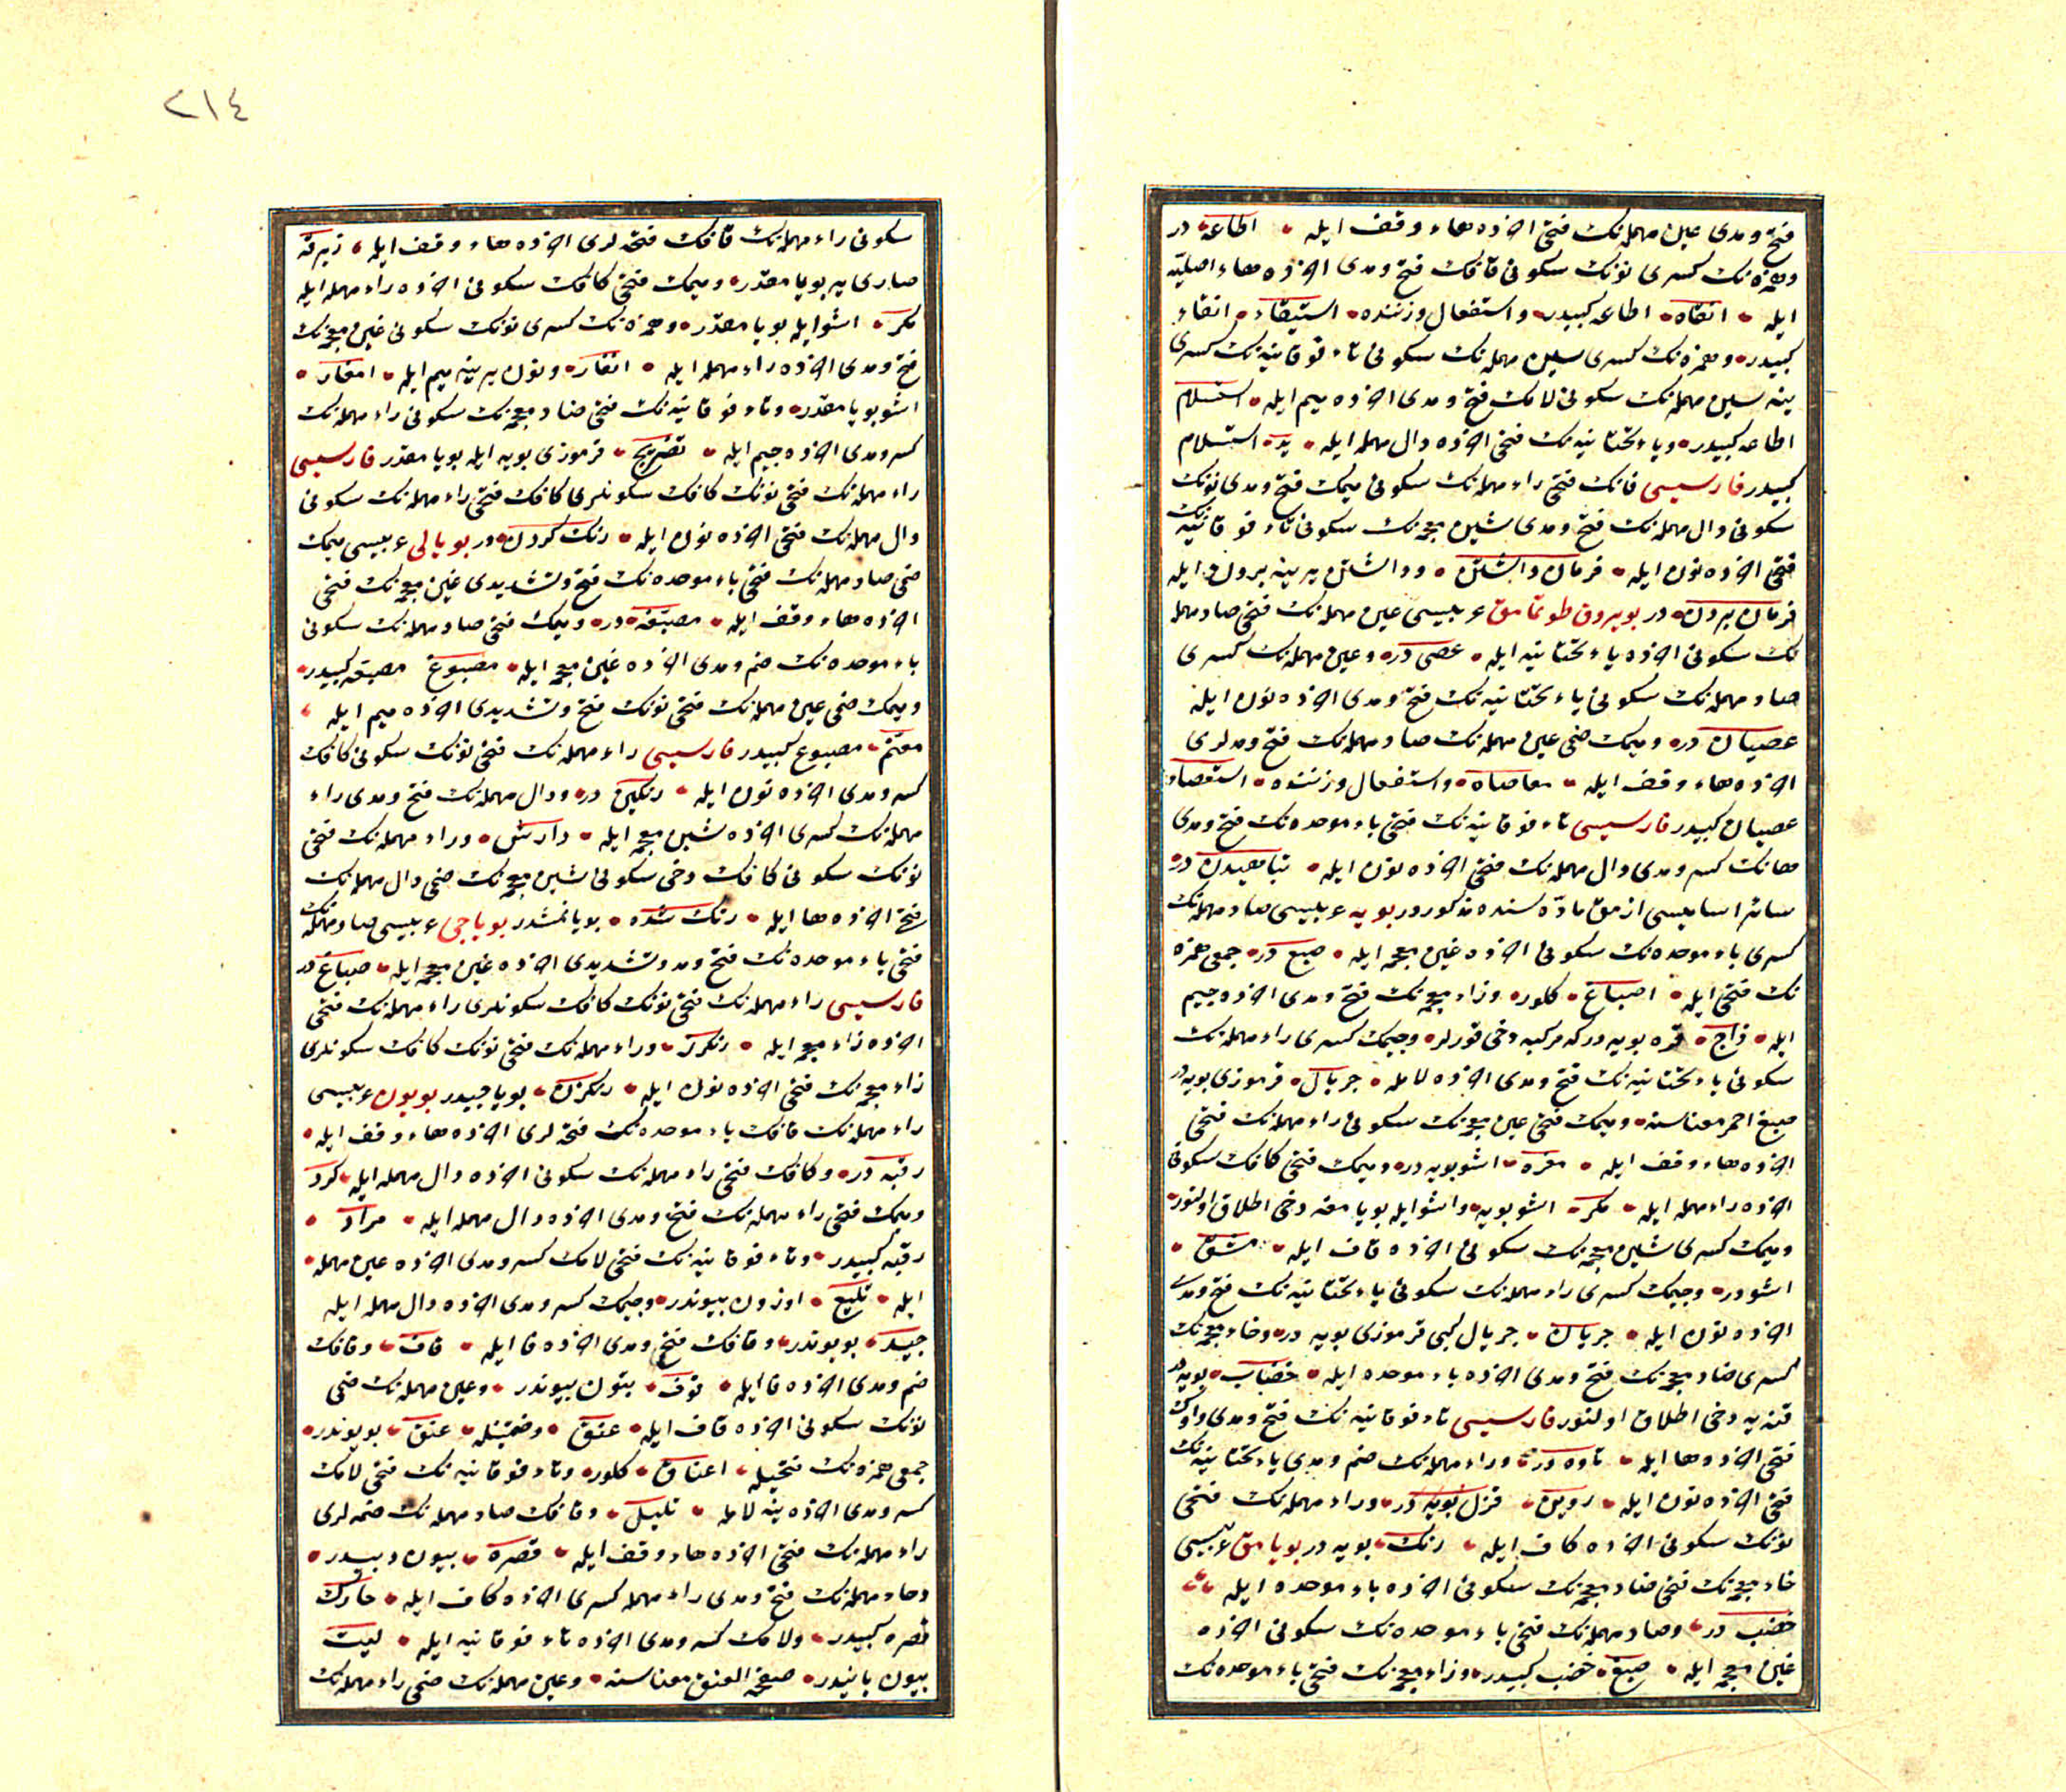 فتح ومدى عين مهمله‌نك فتحى اخرده هاء وقف ايله اطاعة در
وهمزه‌نك كسرى نونك سكونى قافك فتح ومدى اخرده هاء اصليّه
ايله انقاه اطاعه كبيدر واستفعال وزننده استيقاء انقاء
كبيدر وهمزه‌نك كسرى سين مهمله‌نك سكونى تاء فوقانيه‌نك كسرى
ينه سين مهمله‌نك سكونى لامك فتح ومدى اخرده ميم ايله استسلام
اطاعه كبيدر وياء تحتانيه‌نك فتحى اخرده دال مهمله ايله يد استسلام
كبيدر فارسيسى فانك فتحى راء مهمله‌نك سكونى ميمك فتح ومدى نونك
سكونى دال مهمله‌نك فتح ومدى شين معجمه‌نك سكونى تاء فوقانيه‌نك
فتحى اخرده نون ايله فرمان داشتن وداشتن يرينه بردن ايله
فرمان بردن در بويروق طوتمامق عربيسى عين مهمله‌نك فتحى صاد مهمله
نك سكونى اخرده ياء تحتانيه ايله عصى در وعين مهمله‌نك كسرى
صاد مهمله‌نك سكونى ياء تحتانيه‌نك فتح ومدى اخرده نون ايله
عصيان در وميمك ضمى عين مهمله‌نك صاد مهمله‌نك فتح ومدلرى
اخرده هاء وقف ايله معاصاه واستفعال وزننده استعصاء
عصيان كبيدر فارسيسى تاء فوقانيه‌نك فتحى باء موحده‌نك فتح ومدى
هانك كسر ومدى دال مهمله‌نك فتحى اخرده نون ايله تباهيدن در
سائر اساميسى ازمق مادّه سنده مذكوردر بويه عربيسى صاد مهمله‌نك
كسرى باء موحده‌نك سكونى اخرده غين معجمه ايله صبغ در جمعى همزه
نك فتحى ايله اصباغ كلور وزاء معجمه‌نك فتح ومدى اخرده جيم
ايله زاج قره بويه در كه مركبه دخى قورلر وجيمك كسرى راء مهمله‌نك
سكونى ياء تحتانيه‌نك فتح ومدى اخرده لامله جريال قرموزى بويه در
صبغ احمر معناسنه وميمك فتحى غين معجمه‌نك سكونى راء مهمله‌نك فتحى
اخرده هاء وقف ايله مغره اشو بويه در وميمك فتحى كافك سكونى
اخرده راء مهمله ايله مكر اشو بويه واشو ايله بويامغه دخى اطلاق اولنور
وميمك كسرى شين معجمه‌نك سكونى اخرده قاف ايله مشق
اشودر وجيمك كسرى راء مهمله‌نك سكونى ياء تحتانيه‌نك فتح ومدى
اخرده نون ايله جريان جريال كبى قرموزى بويه در وخاء معجمه‌نك
كسرى ضاد معجمه‌نك فتح ومدى اخرده باء موحده ايله خضاب بويه در
قنه‌يه دخى اطلاق اولنور فارسيسى تاء فوقانيه‌نك فتح ومدى واوك
فتحى اخرده ها ايله تاوه در وراء مهمله‌نك ضم ومدى ياء تحتانيه‌نك
فتحى اخرده نون ايله روين قزل بويه در وراء مهمله‌نك فتحى
نونك سكونى اخرده كاف ايله رنك بويه در بويامق عربيسى
خاء معجمه‌نك فتحى ضاد معجمه‌نك سكونى اخرده باء موحده ايله
خضب در وصاد مهمله‌نك فتحى باء موحده‌نك سكونى اخرده
غين معجمه ايله صبغ خضب كبيدر وزاء معجمه‌نك فتحى باء موحده‌نك
٢١٤
سكونى راء مهمله‌نك قافك فتحه‌لرى اخرده هاء وقف ايله زبرقة
صارى يه بويامقدر وميمك فتحى كافك سكونى اخرده راء مهمله ايله
مكر اشو ايله بويامقدر وهمزه‌نك كسرى نونك سكونى غين معجمه‌نك
فتح ومدى اخرده راء مهمله ايله انغار ونون يرينه ميم ايله امغار
اشو بويامقدر وتاء فوقانيه‌نك فتحى ضاد معجمه‌نك سكونى راء مهمله‌نك
كسر ومدى اخرده جيم ايله تضريج قرموزى بويه ايله بويامقدر فارسيسى
راء مهمله‌نك فتحى نونك كافك سكونلرى كافك فتحى راء مهمله‌نك سكونى
دال مهمله‌نك فتحى اخرده نون ايله رنك كردن در بويالى عربيسى ميمك
ضمى صاد مهمله‌نك فتحى باء موحده‌نك فتح وتشديدى غين معجمه‌نك فتحى
اخرده هاء وقف ايله مصبّغة در وميمك فتحى صاد مهمله‌نك سكونى
باء موحده‌نك ضم ومدى اخرده غين معجمه ايله مصبوغ مصبغه كبيدر
وميمك ضمى عين مهمله‌نك فتحى نونك فتح وتشديدى اخرده ميم ايله
معنّم مصبوغ كبيدر فارسيسى راء مهمله‌نك فتحى نونك سكونى كافك
كسر ومدى اخرده نون ايله رنكين در ودال مهمله‌نك فتح ومدى راء
مهمله‌نك كسرى اخرده شين معجمه ايله دارش وراء مهمله‌نك فتحى
نونك سكونى كافك دخى سكونى شين معجمه‌نك ضمى دال مهمله‌نك
فتحى اخرده ها ايله رنك شده بويانمشدر بوياجى عربيسى صاد مهمله‌نك
فتحى باء موحده‌نك فتح ومد وتشديدى اخرده غين معجمه ايله صباغ در
فارسيسى راء مهمله‌نك فتحى نونك كافك سكونلرى راء مهمله‌نك فتحى
اخرده زاء معجمه ايله رنكرز وراء مهمله‌نك فتحى نونك كافك سكونلرى
زاء معجمه‌نك فتحى اخرده نون ايله رنكزن بوياجيدر بويون عربيسى
راء مهمله‌نك قافك باء موحده‌نك فتحه‌لرى اخرده هاء وقف ايله
رقبه در وكافك فتحى راء مهمله‌نك سكونى اخرده دال مهمله ايله كرد
وميمك فتحى راء مهمله‌نك فتح ومدى اخرده دال مهمله ايله مراد
رقبه كبيدر وتاء فوقانيه‌نك فتحى لامك كسر ومدى اخرده عين مهمله
ايله تليع اوزون بيوندر وجيمك كسر ومدى اخرده دال مهمله ايله
جيد بويوندر وقافك فتح ومدى اخرده فا ايله قاف وقافك
ضم ومدى اخرده فا ايله قوف بتون بيوندر وعين مهمله‌نك ضمى
نونك سكونى اخرده قاف ايله عنق وضمتينله عنق بويوندر
جمعى همزه‌نك فتحيله اعناق كلور وتاء فوقانيه‌نك فتحى لامك
كسر ومدى اخرده ينه لامله تليل وقافك صاد مهمله‌نك ضمه‌لرى
راء مهمله‌نك فتحى اخرده هاء وقف ايله قصره بيون ديبيدر
وحاء مهمله‌نك فتح ومدى راء مهمله كسرى اخرده كاف ايله حارك
قصره كبيدر ولامك كسر ومدى اخرده تاء فوقانيه ايله ليت
بيون يانيدر صفحة العنق معناسنه وعين مهمله‌نك ضمى راء مهمله‌نك